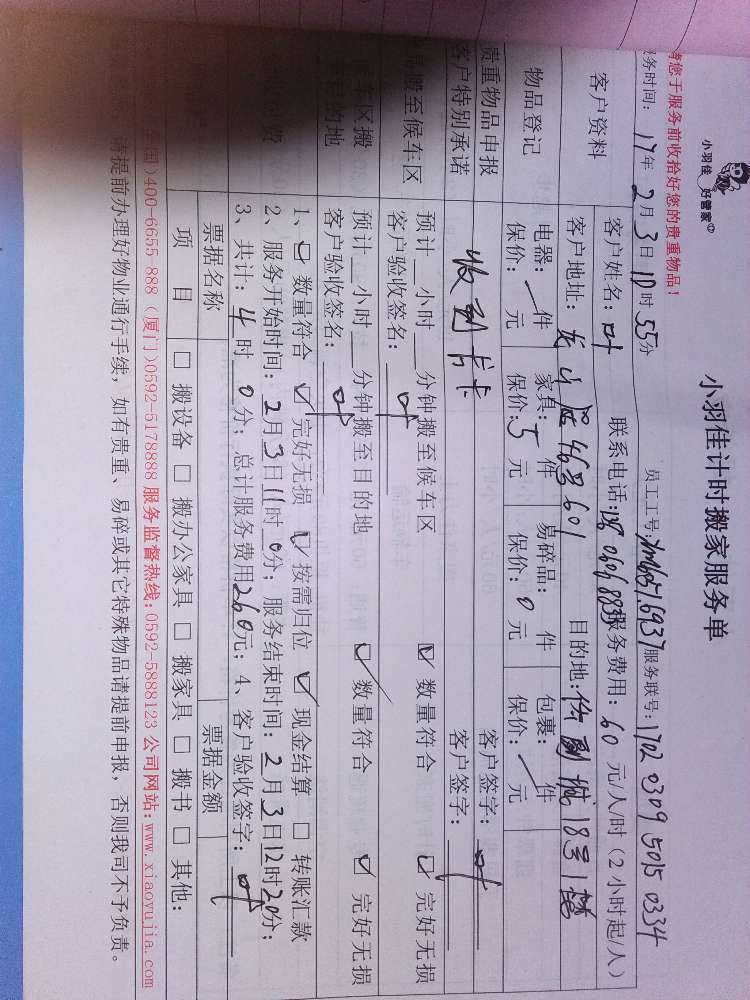 小羽佳 好管家
小羽佳计时搬家服务单
请您于服务前收拾好您的贵重物品!
员工工号:
服务联号:1702 0309 5015 0334
服务时间: 17年 2月 3日 10时 55分
客户资料
客户姓名:叶 联系电话: 服务费用:60元/人/时(2小时起/人)
客户地址:龙山 46号601 目的地: 18号1楼
物品登记
电器: 件 家具: 件 易碎品: 件 包裹: 件
保价: 元 保价:5元 保价:0元 保价: 元
贵重物品申报 客户签字:叶
客户特别承诺 客户签字:叶
搬至候车区
预计 小时 分钟搬至候车区 数量符合 完好无损
客户验收签名:叶
车区搬
的地
预计 小时 分钟搬至目的地 数量符合 完好无损
客户验收签名:叶
1、 数量符合 完好无损 按需归位 现金结算 转账汇款
2、服务开始时间:2月3日11时0分;服务结束时间:2月3日12时20分;
3、共计:4时0分;总计服务费用260元;4、客户验收签字:叶
票据名称 票据金额
项目 搬设备 搬办公家具 搬家具 搬书 其他:
国)400-6655 888 (厦门)0592-5178888 服务监督热线:0592-5888123 公司网站:www.xiaoyujia.com
请提前办理好物业通行手续,如有贵重、易碎或其它特殊物品请提前申报,否则我司不予负责。